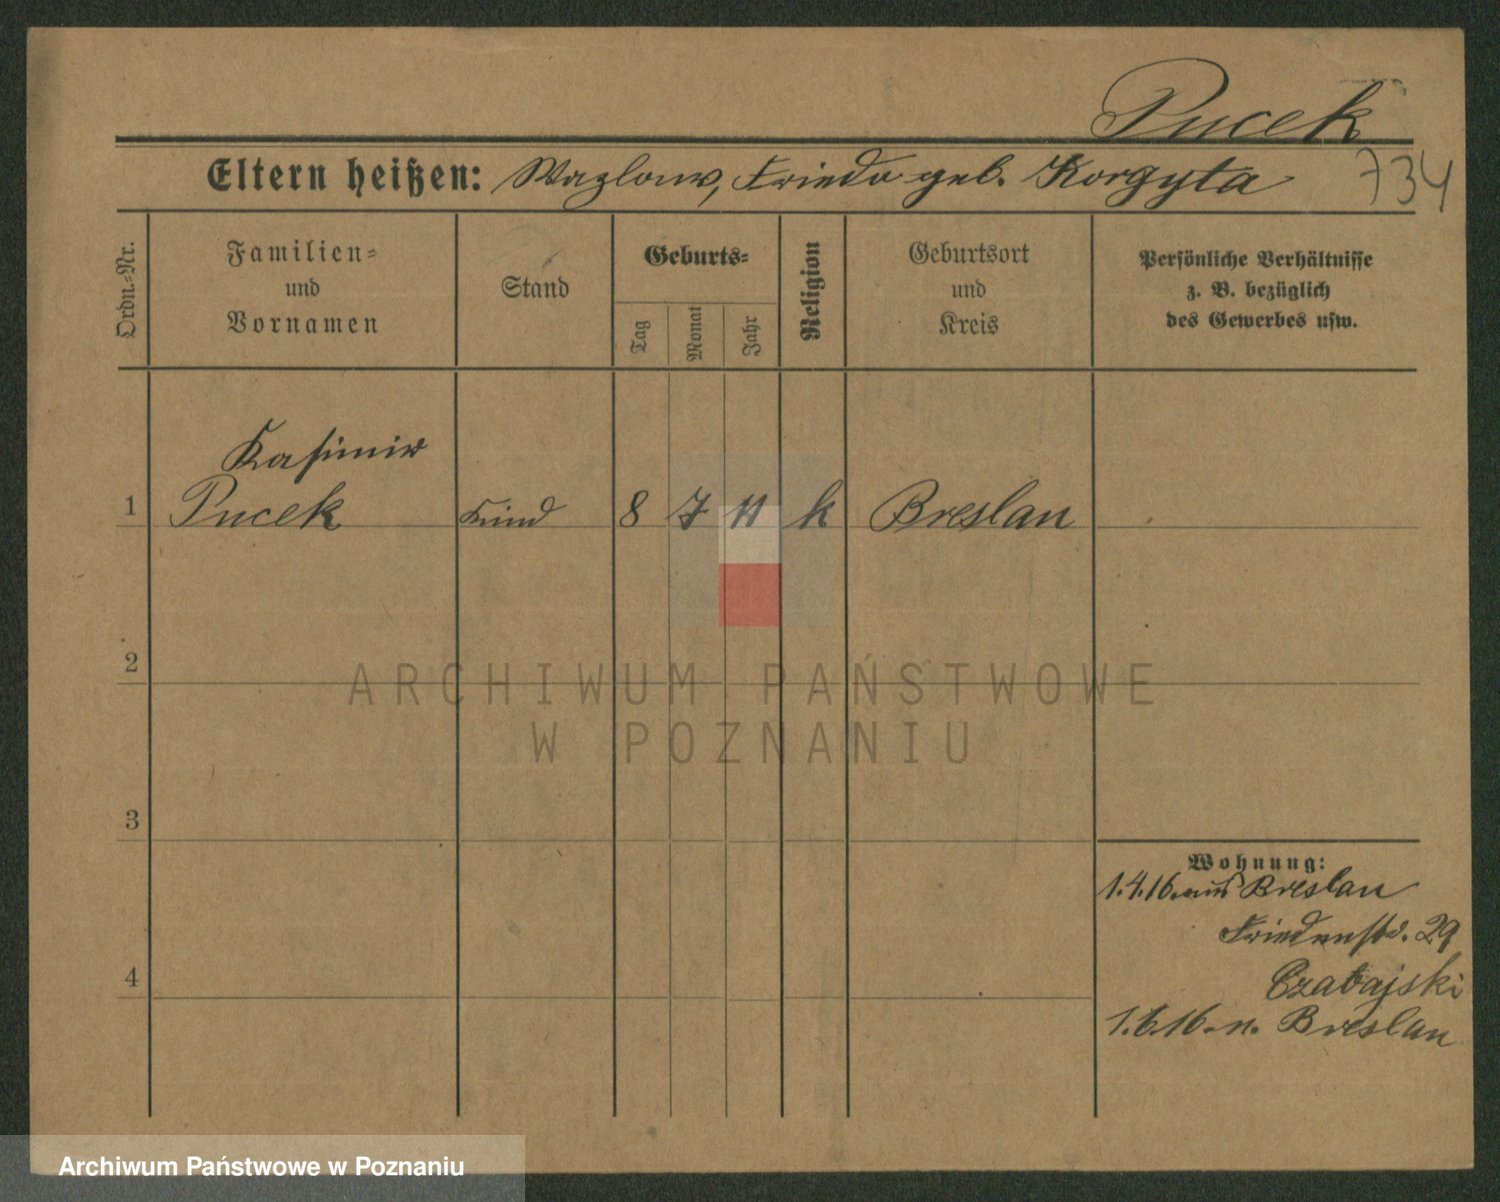 Pucek
Eltern heißen: Wazlaw, Frieda geb. Korzyta
734
Ordn.-Nr.
Familien-
und
Vornamen
Stand
Geburts-
Tag
Monat
Jahr
Religion
Geburtsort
und
Kreis
Persönliche Verhältnisse
z. B. bezüglich
des Gewerbes usw.
Kasimir
1 Pucek Kind 8 7 11 k Breslau
2
3
4
Wohnung:
1.4.16. aus Breslau
Friedenstr. 29
Czabajski
1.6.16. n. Breslau
ARCHIWUM PAŃSTWOWE
W POZNANIU
Archiwum Państwowe w Poznaniu